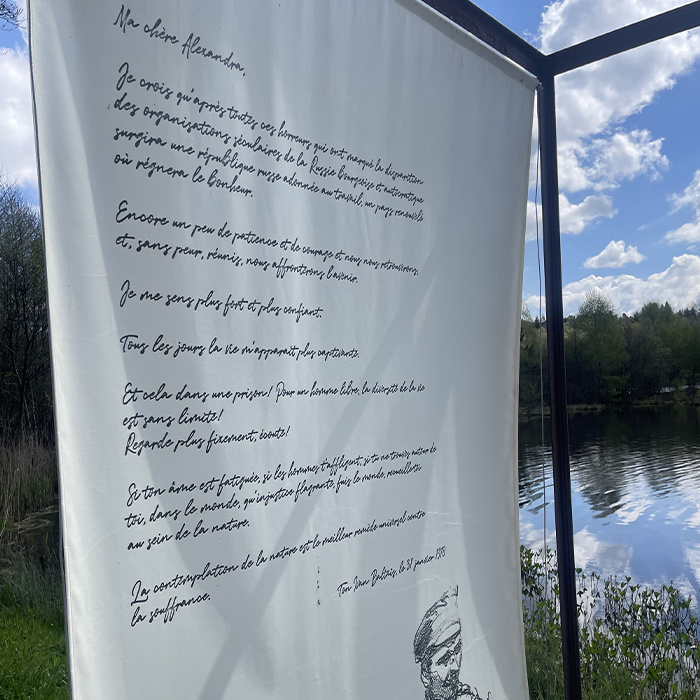 Ma chère Alexandra,
Je crois qu'après toutes ces horreurs qui ont marqué la disparition
des organisations séculaires de la Russie bourgeoise et autocratique
surgira une république russe adonnée au travail, un pays renouvelé
où régnera le bonheur.
Encore un peu de patience et de courage et nous nous retrouverons,
et, sans peur, réunis, nous affronterons l'avenir.
Je me sens plus fort et plus confiant.
Tous les jours la vie m'apparaît plus captivante.
Et cela dans une prison! Pour un homme libre, la diversité de la vie
est sans limite!
Regarde plus fixement, écoute!
Si ton âme est fatiguée, si les hommes t'affligent, si tu ne trouves autour de
toi, dans le monde, qu'injustice flagrante, fuis le monde, recueillets
au sein de la nature.
La contemplation de la nature est le meilleur remède universel contre
la souffrance.
Ton Ivan Baltais, le 31 janvier 1918